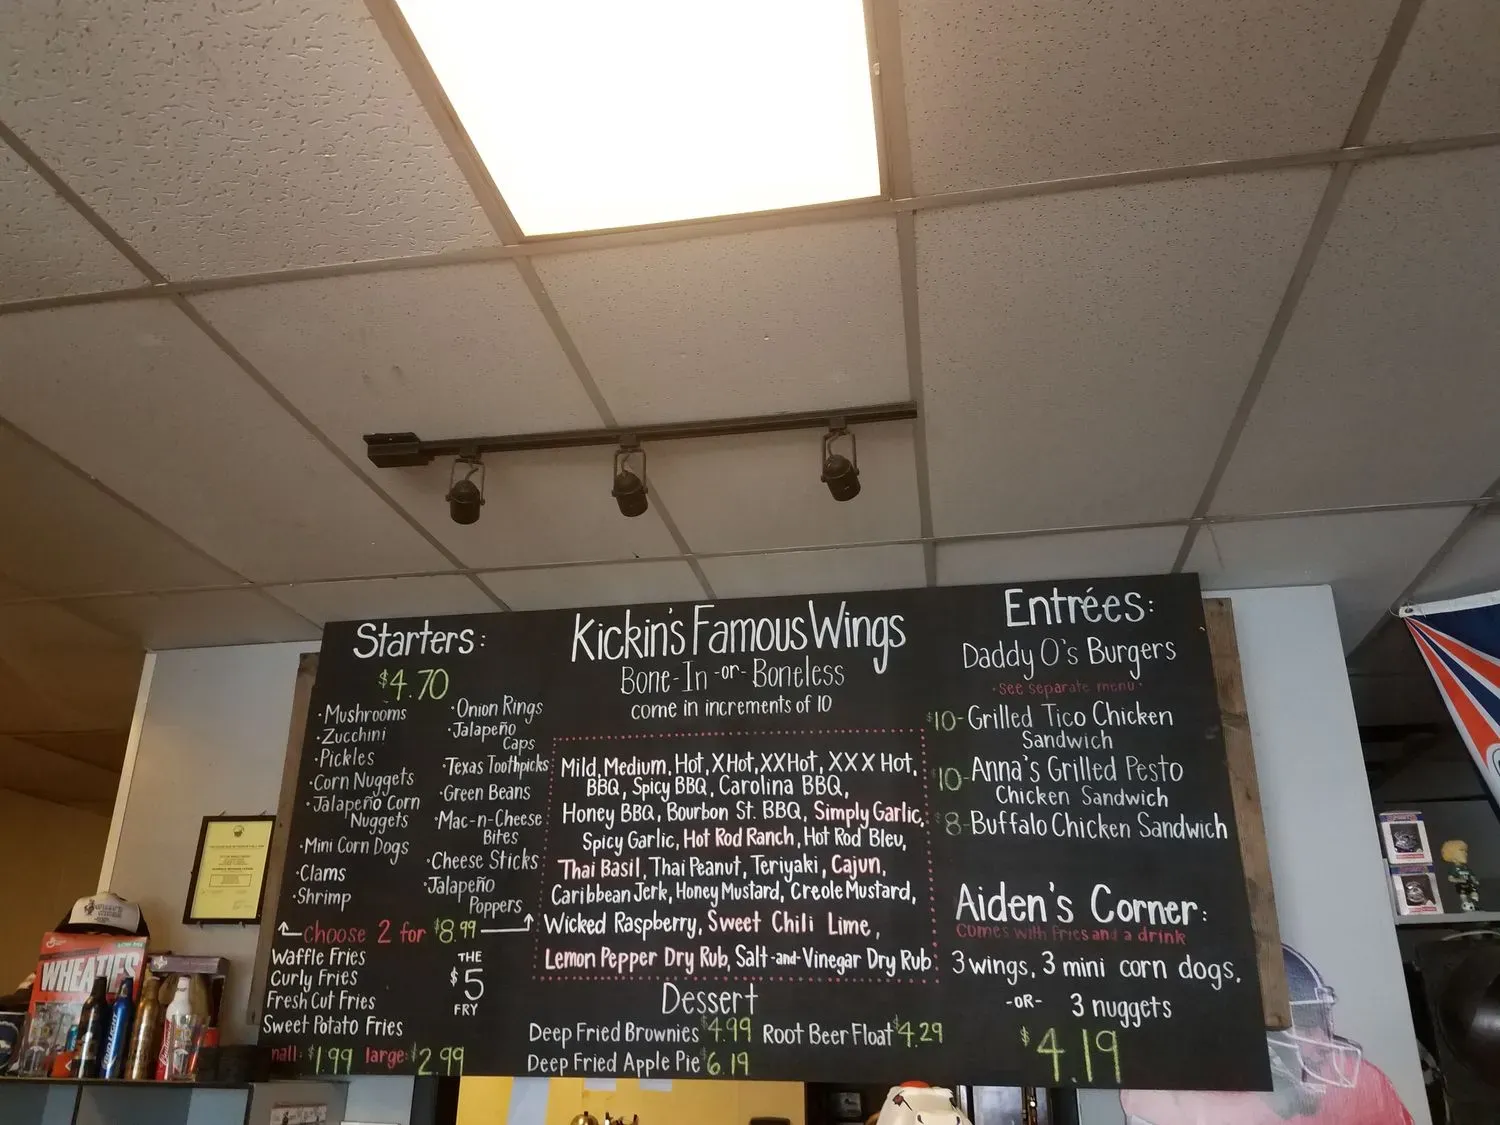 Starters:
$4.70
·Mushrooms
·Zucchini
·Pickles
·Corn Nuggets
·Jalapeño Corn
Nuggets
·Mini Corn Dogs
·Clams
·Shrimp
·Onion Rings
·Jalapeño
Caps
·Texas Toothpicks
·Green Beans
·Mac-n-Cheese
Bites
·Cheese Sticks
·Jalapeño
Poppers
Choose 2 for $8.99
Waffle Fries
Curly Fries
Fresh Cut Fries
Sweet Potato Fries
mall: $1.99 large: $2.99
THE
$5
FRY
Kickin's Famous Wings
Bone-In -or- Boneless
come in increments of 10
Mild, Medium, Hot, XHot, XXHot, XXX Hot,
BBQ, Spicy BBQ, Carolina BBQ,
Honey BBQ, Bourbon St. BBQ, Simply Garlic,
Spicy Garlic, Hot Rod Ranch, Hot Rod Bleu,
Thai Basil, Thai Peanut, Teriyaki, Cajun,
Caribbean Jerk, Honey Mustard, Creole Mustard,
Wicked Raspberry, Sweet Chili Lime,
Lemon Pepper Dry Rub, Salt-and-Vinegar Dry Rub
Dessert
Deep Fried Brownies $4.99 Root Beer Float $4.29
Deep Fried Apple Pie $6.19
Entrées:
Daddy O's Burgers
·see separate menu·
$10-Grilled Tico Chicken
Sandwich
$10-Anna's Grilled Pesto
Chicken Sandwich
$8-Buffalo Chicken Sandwich
Aiden's Corner:
comes with fries and a drink
3 wings, 3 mini corn dogs,
-OR- 3 nuggets
$4.19
WHEATIES